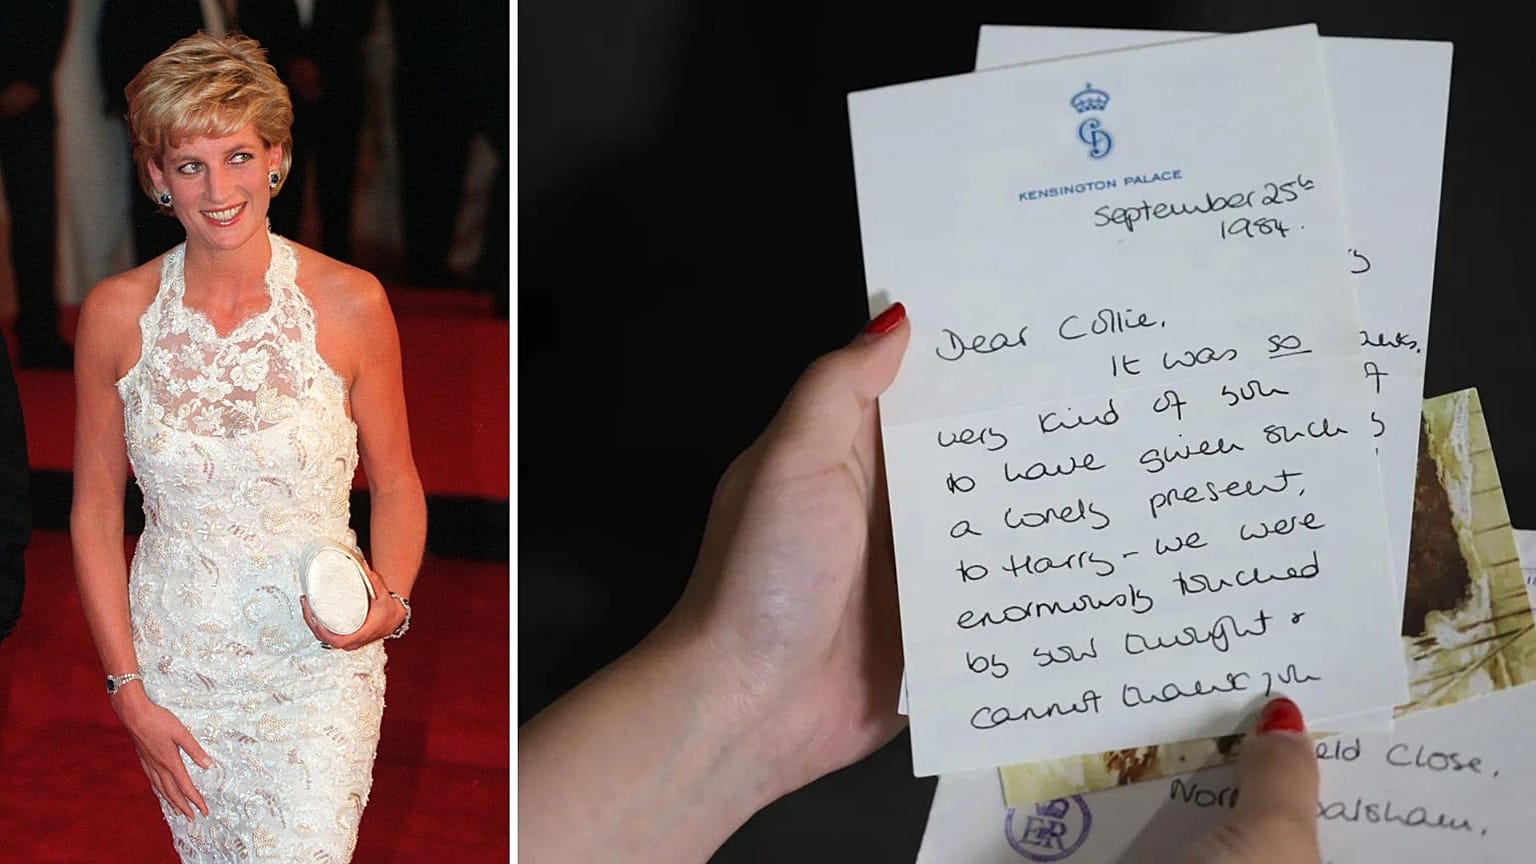 KENSINGTON PALACE
September 25th
1984.
Dear Collie,
It was so
very kind of you
to have given such
a lovely present,
to Harry – we were
enormously touched
by your thought &
cannot thank you
eld Close,
Nor alsham,
ER